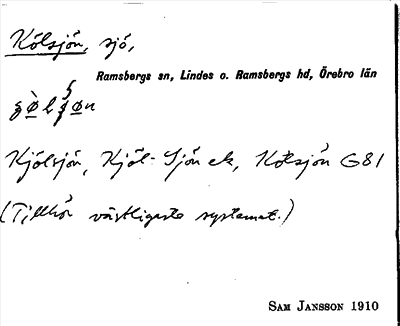 Kölsjön, sjö,
Ramsbergs sn, Lindes o. Ramsbergs hd, Örebro län
Kjölsjön, Kjöl-Sjön ek, Kölsjön G81
(Tillhör västligaste systemet.)
SAM JANSSON 1910